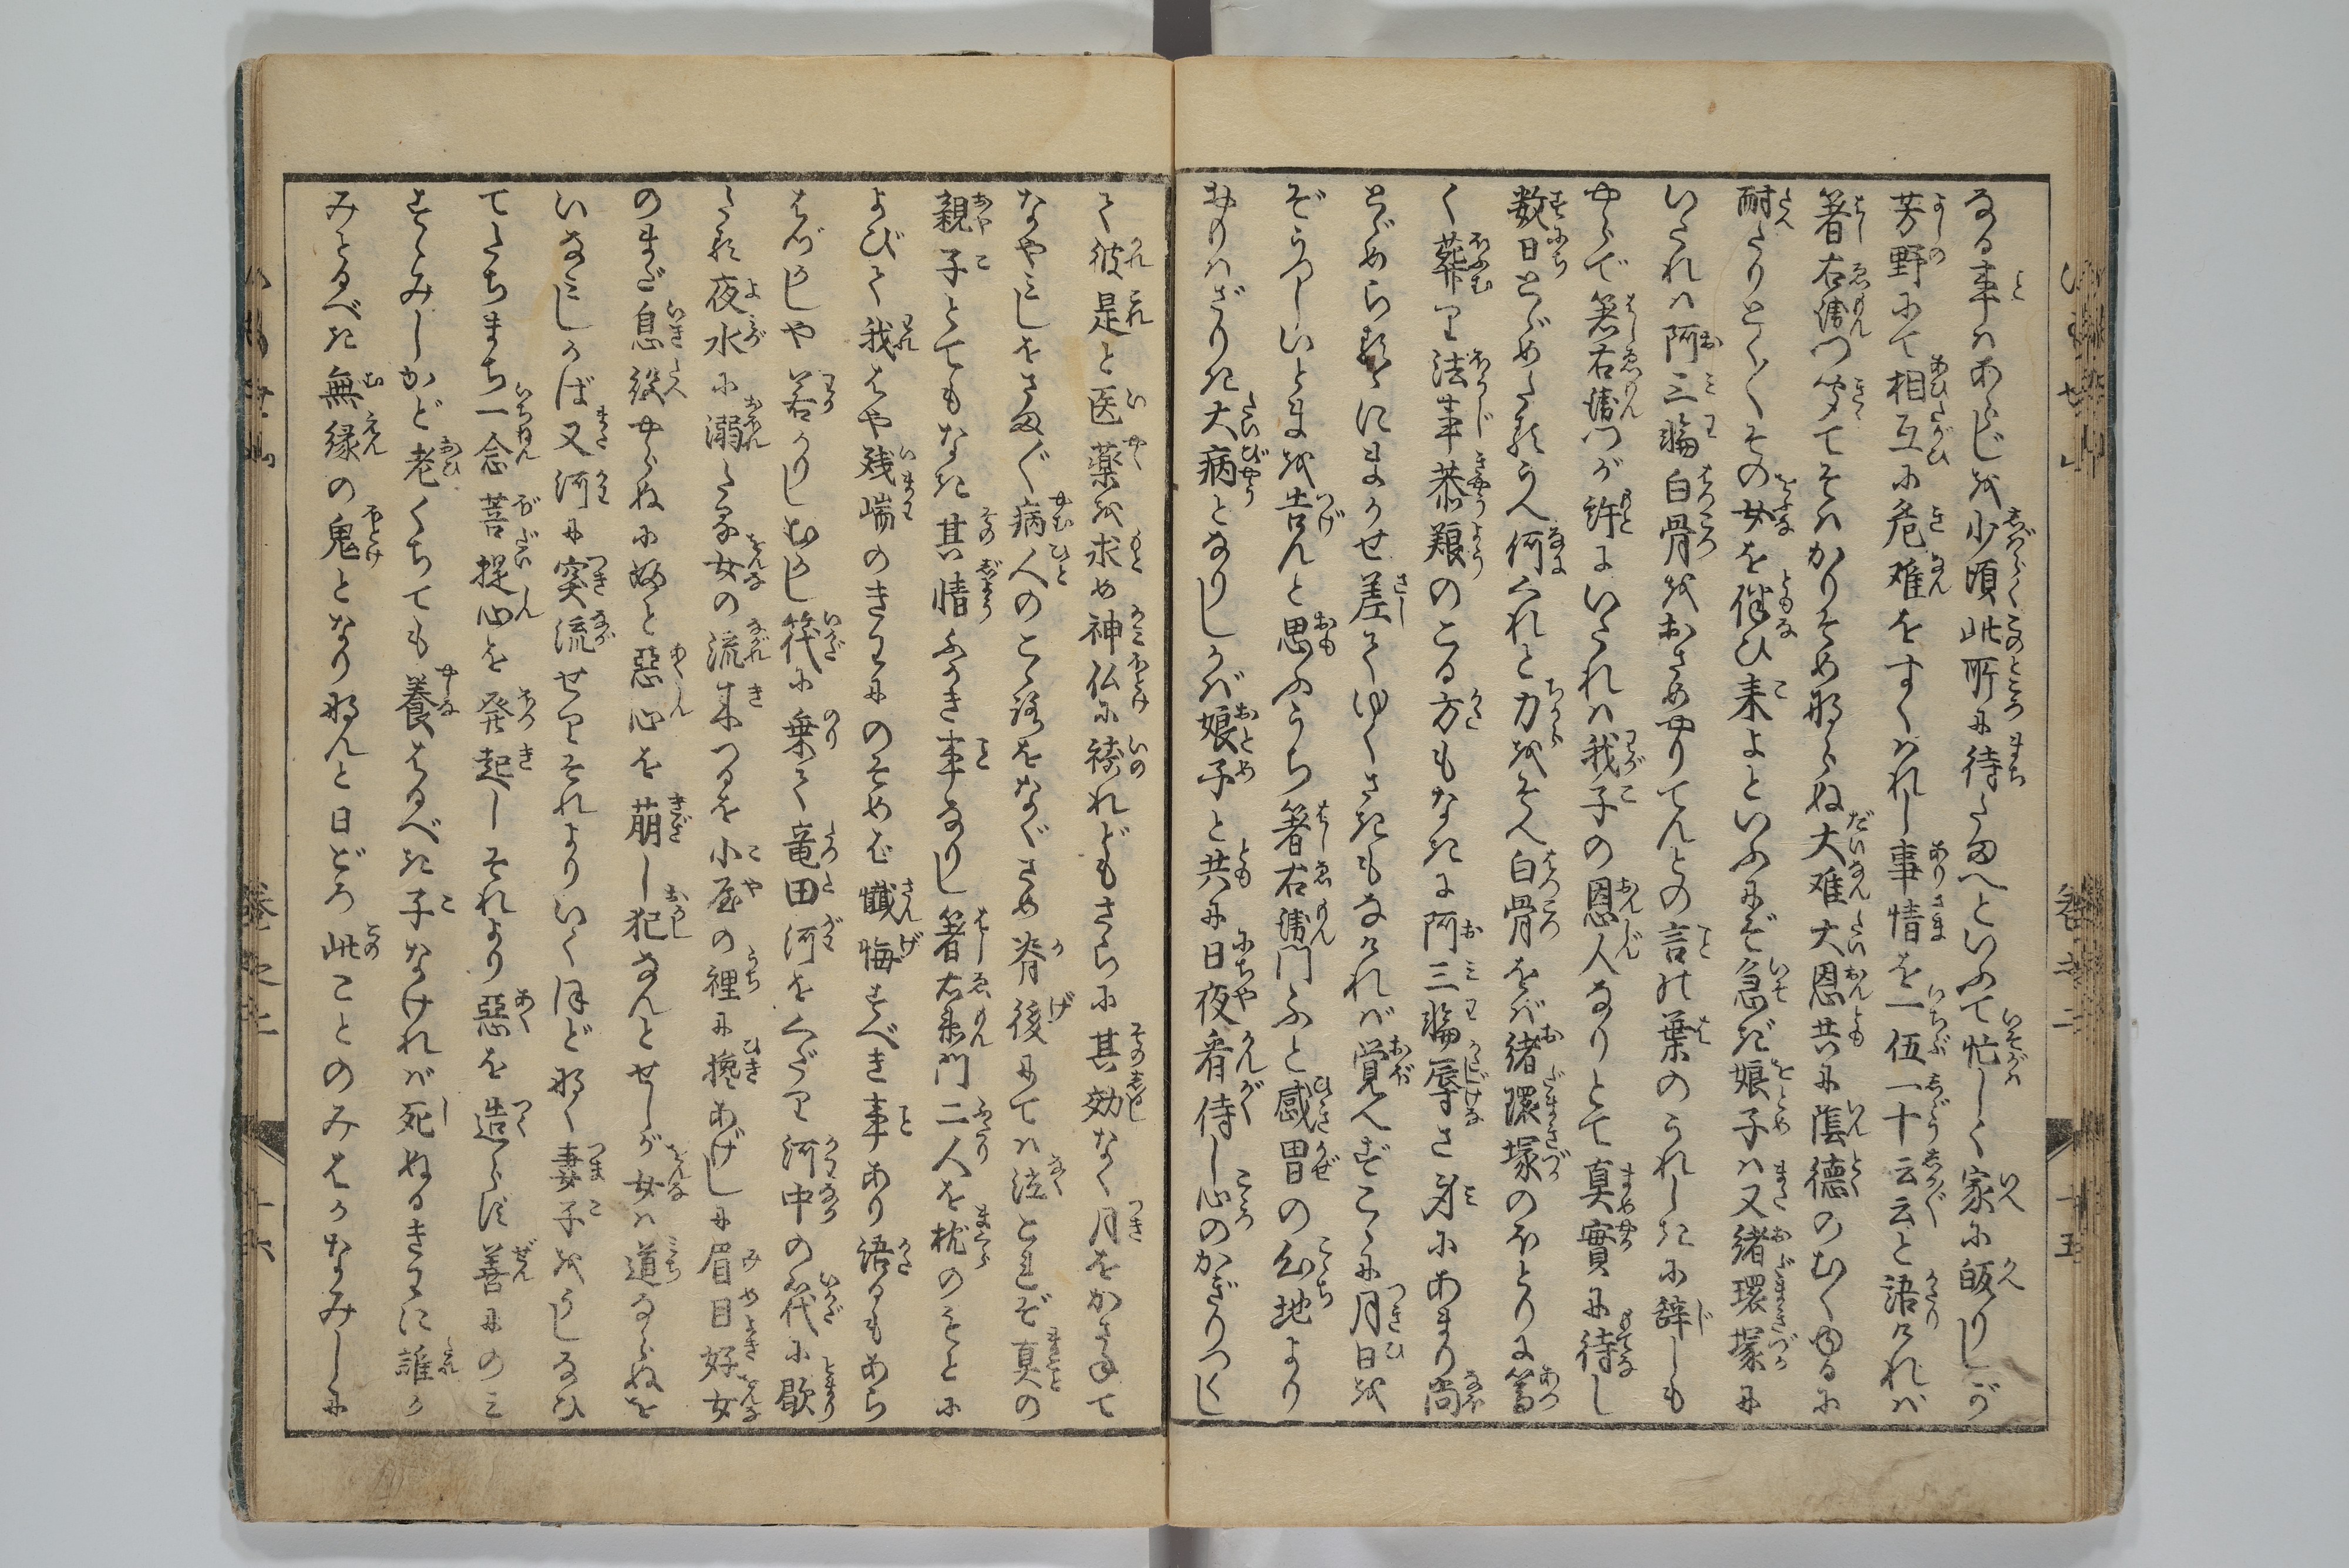 なる事はあらじを少頃此所に待たまへといふて忙しく家に皈りしが
芳野にて相互に危難をすくはれし事情を一伍一十云云と語ければ
箸右衛門聞てそはかりそめならぬ大难大恩共に蔭德のむくゆるに
耐たりとく〳〵その女を伴ひ来よといふにぞ急ぎ娘子は又緒環塚に
いたれは阿三輪白骨をおさめやりてんとの言の葉のうれしきに辞しも
やらで箸右衛門が許にいたれは我子の恩人なりとて真實に待し
数日とゞめたるうへ何くれと力をそへ白骨をば緒環塚のほとりに篤
く葬り法事恭養のこる方もなきに阿三輪辱さ身にあまり尚
とゞめらるゝにまかせ差てゆくさきもなければ覚へずこゝに月日を
ぞうつしいとまを告んと思ふうち箸右衛門ふと感冒の心地より
おもはざりき大病となりしかば娘子と共に日夜看侍し心のかぎりつくし
て彼是と医薬を求め神仏に祷れどもさらに其効なく月をかさねて
なやみしをさま〴〵病人のこゝろをなぐさめ脊後にては泣とぞ真の
親子とてもなき其情ふかき事なりし箸右衛門二人を枕のもとに
よびて我はや残喘のきはにのぞめば懺悔すべき事あり語るもあら
はづかしや若かりしむかし筏に乗て竜田河をくだり河中の筏に歇
たる夜水に溺たる女の流来つるを小屋の裡に搀あげしに眉目好女
のまだ息絶やらぬにふと惡心を萠し犯なんとせしが女は道ならぬを
いなみしかば又河に突流せりそれよりいくほどなく妻子をうしなひ
てたちまち一念菩提心を発起しそれより惡を造らず善にのみ
すゝみしかど老くちても養はるべき子なければ死ぬるきはに誰か
みとるべき無縁の鬼となりなんと日ごろ此ことのみはかなみしに